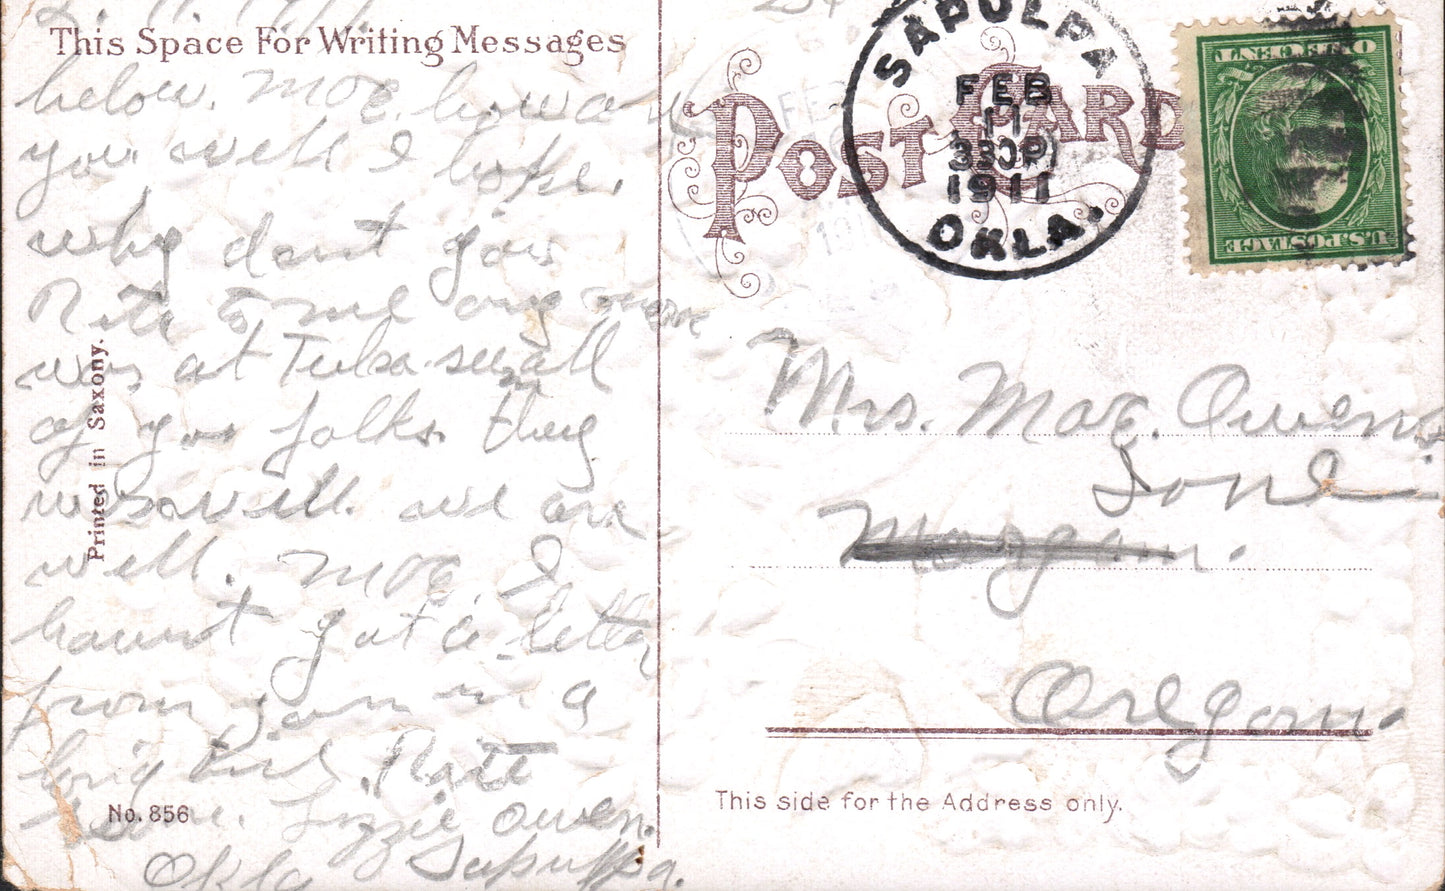 2. 11. 1911
This Space For Writing Messages
below. Mae. how are
you well I hope.
why dont you
Rite to me any more
was at Tulsa. seen all
of you folks. they
was well. we are
well. Mae. I
haven't got a letter
from you in a
long time. Rite
soon. Lizzie Owen.
Okla Sapulpa.
Printed in Saxony.
No. 856
POST CARD
SAPULPA
FEB
11
330P
1911
OKLA.
ONE CENT
U.S. POSTAGE
Mrs. Mae. Owens
Ione
Morgan.
Oregon.
This side for the Address only.